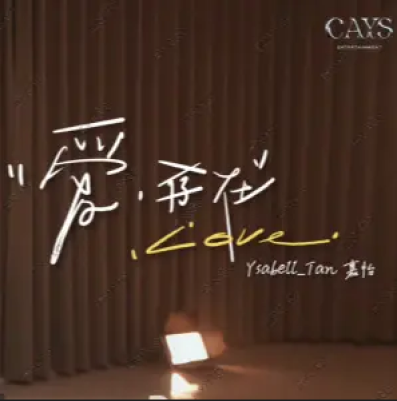 CAYS
ENTERTAINMENT
"爱.存在"
.Love.
Ysabell_Tan 嘉怡